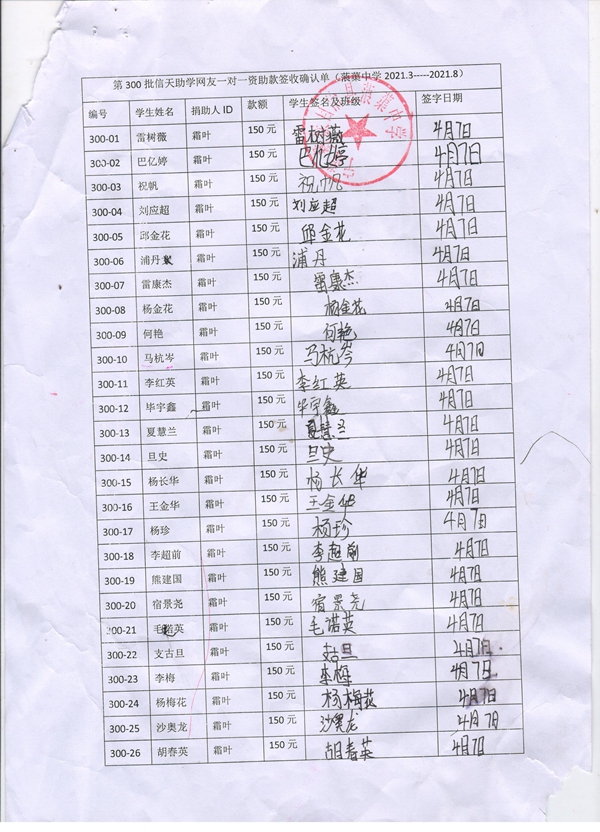 第 300 批信天助学网友一对一资助款签收确认单（蒗蕖中学 2021.3-----2021.8）
编号 学生姓名 捐助人 ID 款额 学生签名及班级 签字日期
300-01 雷树薇 霜叶 150 元 雷树薇 4月7日
300-02 巴亿婷 霜叶 150 元 巴亿婷 4月7日
300-03 祝帆 霜叶 150 元 祝帆 4月7日
300-04 刘应超 霜叶 150 元 刘应超 4月7日
300-05 邱金花 霜叶 150 元 邱金花 4月7日
300-06 浦丹 霜叶 150 元 浦丹 4月7日
300-07 雷康杰 霜叶 150 元 雷康杰 4月7日
300-08 杨金花 霜叶 150 元 杨金花 4月7日
300-09 何艳 霜叶 150 元 何艳 4月7日
300-10 马杭岑 霜叶 150 元 马杭岑 4月7日
300-11 李红英 霜叶 150 元 李红英 4月7日
300-12 毕宇鑫 霜叶 150 元 毕宇鑫 4月7日
300-13 夏慧兰 霜叶 150 元 夏慧兰 4月7日
300-14 旦史 霜叶 150 元 旦史 4月7日
300-15 杨长华 霜叶 150 元 杨长华 4月7日
300-16 王金华 霜叶 150 元 王金华 4月7日
300-17 杨珍 霜叶 150 元 杨珍 4月7日
300-18 李超前 霜叶 150 元 李超前 4月7日
300-19 熊建国 霜叶 150 元 熊建国 4月7日
300-20 宿景尧 霜叶 150 元 宿景尧 4月7日
300-21 毛诺英 霜叶 150 元 毛诺英 4月7日
300-22 支古旦 霜叶 150 元 4月7日
300-23 李梅 霜叶 150 元 李梅 4月7日
300-24 杨梅花 霜叶 150 元 杨梅花 4月7日
300-25 沙奥龙 霜叶 150 元 沙奥龙 4月7日
300-26 胡春英 霜叶 150 元 胡春英 4月7日